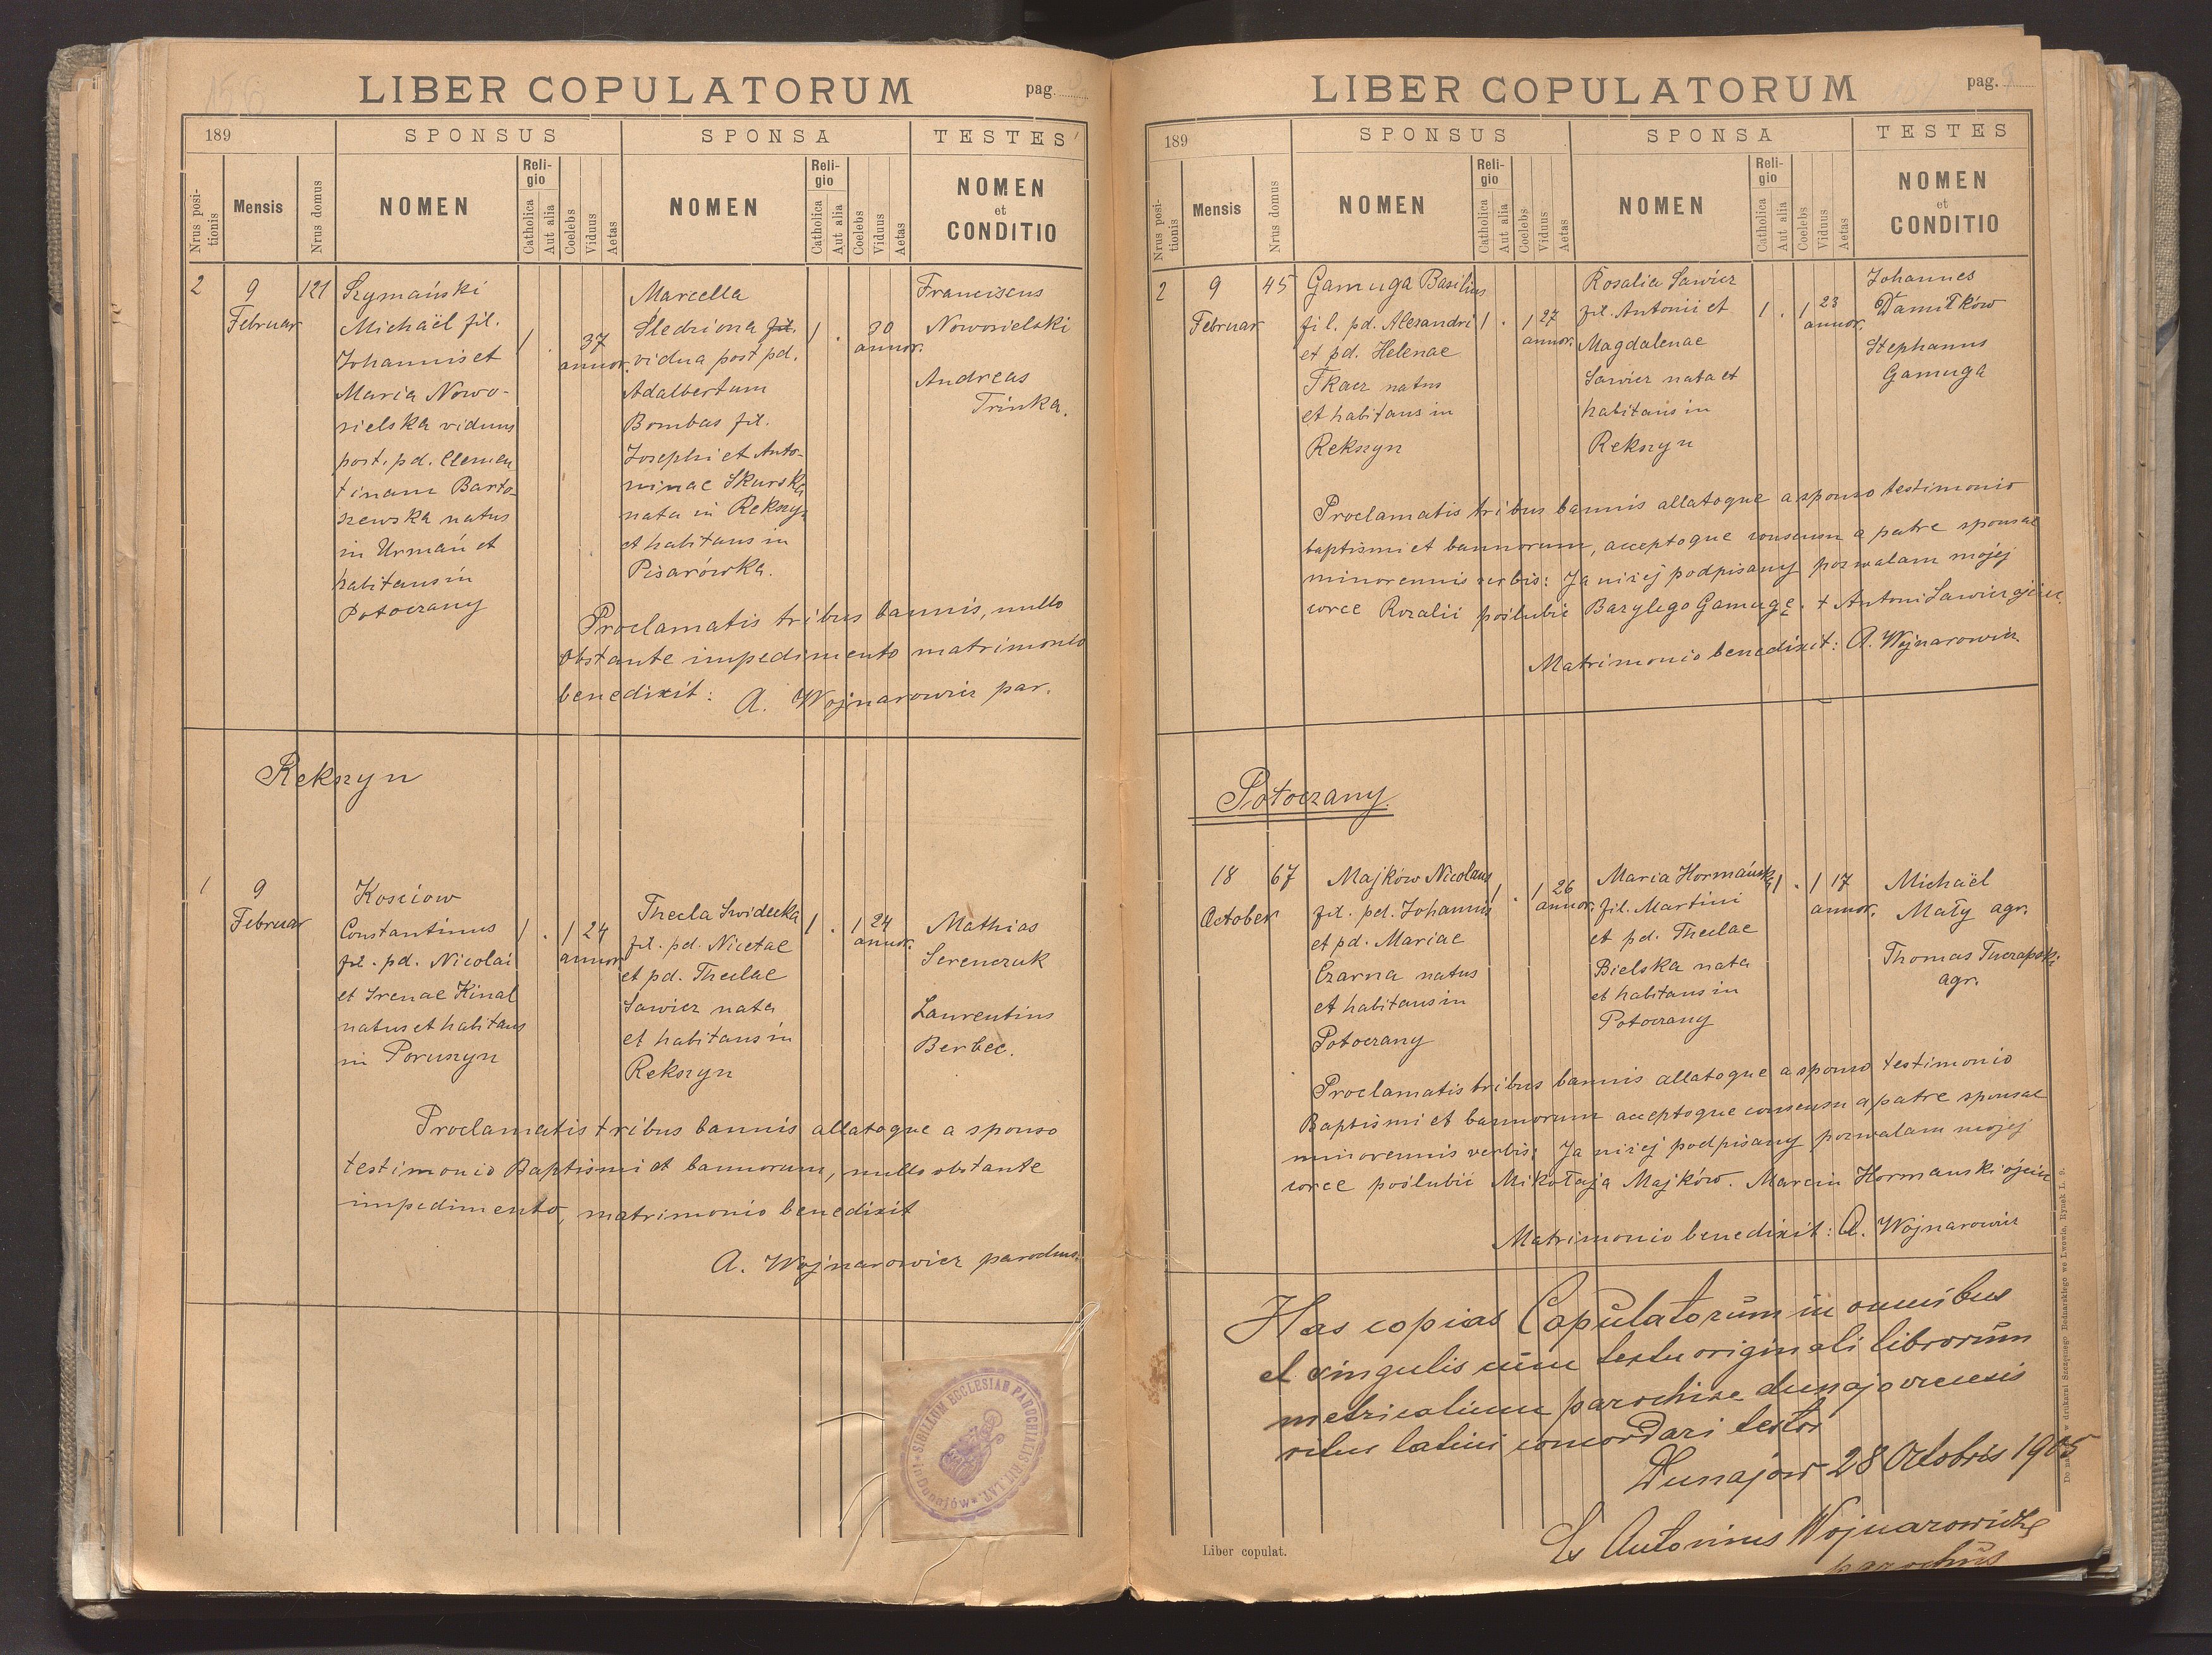 LIBER COPULATORUM
pag.
189
SPONSUS
SPONSA
TESTES
Nrus positionis
Mensis
Nrus domus
NOMEN
Religio
Catholica
Aut alia
Coelebs
Viduus
Aetas
NOMEN
Religio
Catholica
Aut alia
Coelebs
Viduus
Aetas
NOMEN
et
CONDITIO
2
9
Februar
121
Szymański
Michaël fil.
Johannis et
Maria Nowo-
sielska viduus
post. pd. Clemen
tinam Barto-
szewska natus
in Urmań et
habitans in
Potoczany
1 . 37
annor.
Marcella
Śledziona fil.
vidua post pd.
Adalbertum
Bombas fil.
Josephi et Anto-
ninae Skurska
nata in Rekszyn
et habitans in
Pisarówka.
1 . 30
annor.
Franciscus
Nowosielski
Andreas
Trinka.
Proclamatis tribus bannis, nullo
obstante impedimento matrimonio
benedixit: A. Wojnarowicz par.
Rekszyn
1
9
Februar
Kosciow
Constantinus
fil. pd. Nicolai
et Irenae Kinal
natus et habitans
in Poruszyn
1 . 1 24
annor
Thecla Swidecka
fil. pd. Nicetae
et pd. Theclae
Sawicz nata
et habitans in
Rekszyn
1 . 1 24
annor.
Mathias
Serenczuk
Laurentius
Berbec.
Proclamatis tribus bannis allatoque a sponso
testimonio Baptismi et bannorum, nullo obstante
impedimento, matrimonio benedixit
A. Wojnarowicz parochus.
SIGILLUM ECCLESIAE PAROCHIALIS RIT. LAT. in Dunajów
LIBER COPULATORUM
pag.
189
SPONSUS
SPONSA
TESTES
Nrus positionis
Mensis
Nrus domus
NOMEN
Religio
Catholica
Aut alia
Coelebs
Viduus
Aetas
NOMEN
Religio
Catholica
Aut alia
Coelebs
Viduus
Aetas
NOMEN
et
CONDITIO
2
9
Februar
45
Gamuga Basilius
fil. pd. Alexandri
et pd. Helenae
Tkacz natus
et habitans in
Rekszyn
1 . 1 27
annor.
Rosalia Sawicz
fil. Antonii et
Magdalenae
Sawicz nata et
habitans in
Rekszyn
1 . 1 23
annor.
Johannes
Damiłków
Stephanus
Gamuga
Proclamatis tribus bannis allatoque a sponso testimonio
baptismi et bannorum, acceptoque consensu a patre sponsae
minorennis verbis: Ja niżej podpisany pozwalam mojej
corce Rozalii poślubić Bazylego Gamugę. + Antoni Sawicz ojciec.
Matrimonio benedixit: A. Wojnarowicz
Potoczany.
18
October
67
Majków Nicolaus
fil. pd. Johannis
et pd. Mariae
Czarna natus
et habitans in
Potoczany
1 . 1 26
annor.
Maria Hormańska
fil. Martini
et pd. Theclae
Bielska nata
et habitans in
Potoczany
1 . 1 17
annor.
Michaël
Mały agr.
Thomas Tuczapski
agr.
Proclamatis tribus bannis allatoque a sponso testimonio
Baptismi et bannorum acceptoque consensu a patre sponsae
minorennis verbis: Ja niżej podpisany pozwalam mojej
corce poślubić Mikołaja Majków. Marcin Hormanski ojciec
Matrimonio benedixit: A. Wojnarowicz
Has copias Copulatorum in omnibus
et singulis cum textu originali librorum
metricalium parochiae dunajoviensis
ritus latini concordari testor
Dunajow 28 Octobris 1905
Antonius Wojnarowicz
parochus
Liber copulat.
w drukarni Szczęsnego Bednarskiego we Lwowie, Rynek L. 9.